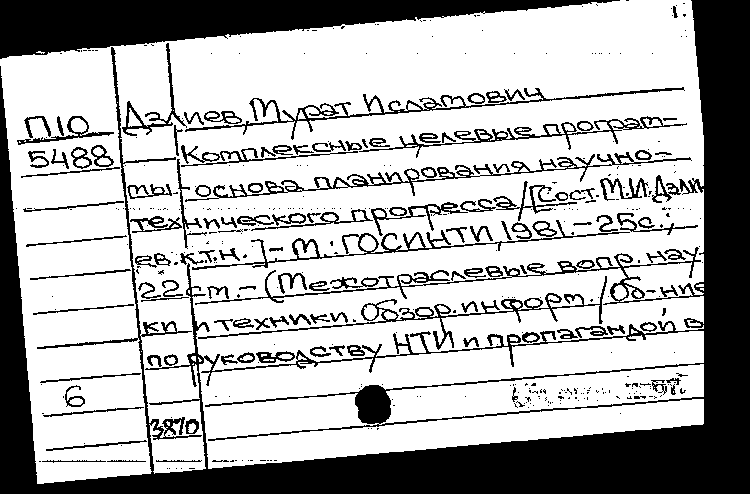 1.
П10 Дзлиев, Мурат Исламович
5488 Комплексные целевые програм-
мы - основа планирования научно-
технического прогресса / [Сост. М.И. Дзли
ев. к.т.н.] - М.: ГОСИНТИ, 1981. - 25с.;
22см. - (Межотраслевые вопр. нау
ки и техники. Обзор. информ. / Об-ние
по руководству НТИ и пропагандой в
6
3870